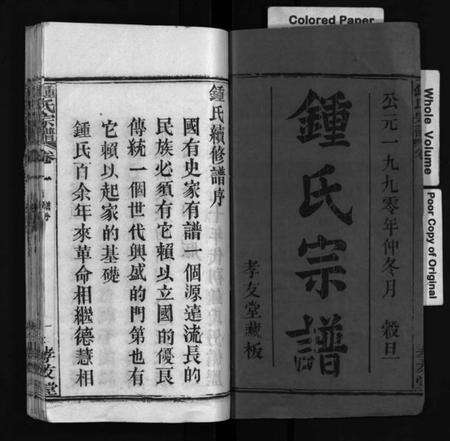 Colored Paper
Whole Volume
Poor Copy of Original
公元一九九0年仲冬月 穀旦
鍾氏宗譜
孝友堂藏板
鍾氏續修譜序
國有史家有譜一個源遠流長的
民族必須有它賴以立國的優良
傳統一個世代興盛的門第也有
它賴以起家的基礎
鍾氏百余年來革命相繼德慧相
鍾氏宗譜 卷一
孝友堂